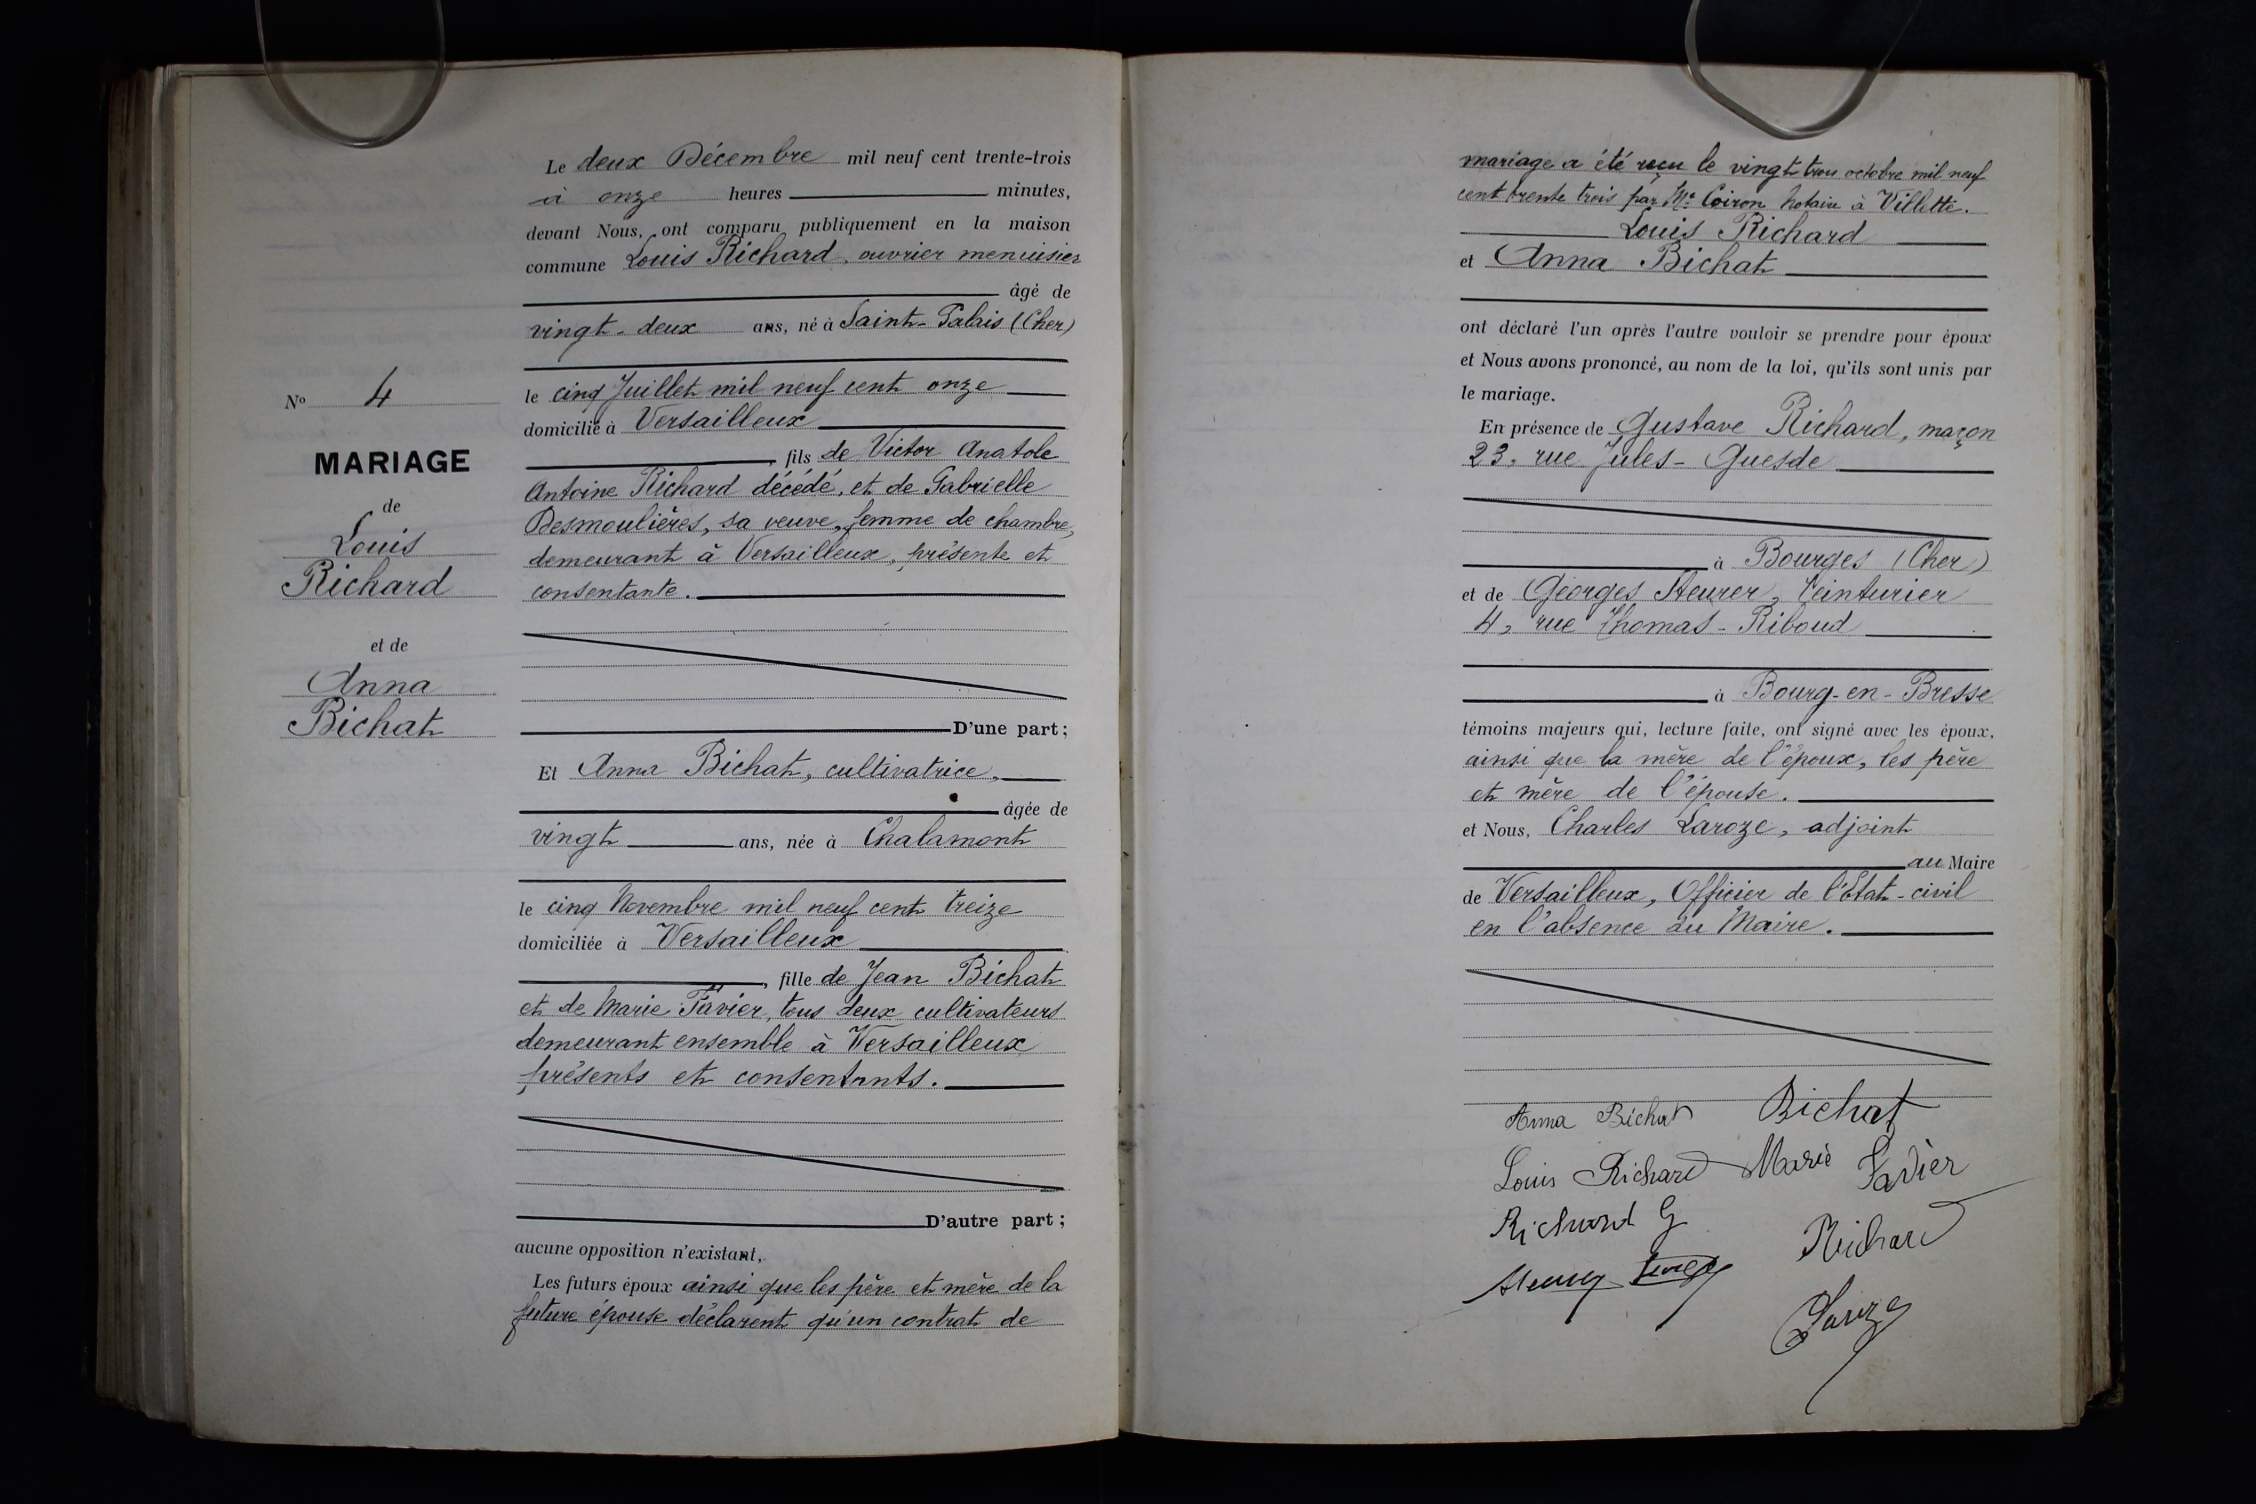 N° 4
MARIAGE
de
Louis
Richard
et de
Anna
Bichat
Le deux Décembre mil neuf cent trente-trois
à onze heures minutes,
devant Nous, ont comparu publiquement en la maison
commune Louis Richard, ouvrier menuisier
âgé de
vingt-deux ans, né à Saint-Palais (Cher)
le cinq Juillet mil neuf cent onze
domicilié à Versailleux
, fils de Victor Anatole
Antoine Richard décédé, et de Gabrielle
Desmoulières, sa veuve, femme de chambre,
demeurant à Versailleux, présente et
consentante.
D'une part;
Et Anna Bichat, cultivatrice,
âgée de
vingt ans, née à Chalamont
le cinq Novembre mil neuf cent treize
domiciliée à Versailleux
, fille de Jean Bichat
et de Marie Favier, tous deux cultivateurs
demeurant ensemble à Versailleux
présents et consentants.
D'autre part;
aucune opposition n'existant,
Les futurs époux ainsi que les père et mère de la
future épouse déclarent qu'un contrat de
mariage a été reçu le vingt trois octobre mil neuf
cent trente trois par Me Coiron notaire à Villette.
Louis Richard
et Anna Bichat
ont déclaré l'un après l'autre vouloir se prendre pour époux
et Nous avons prononcé, au nom de la loi, qu'ils sont unis par
le mariage.
En présence de Gustave Richard, maçon
23, rue Jules-Guesde
à Bourges (Cher)
et de Georges Steurer, Teinturier
4, rue Thomas-Riboud
à Bourg-en-Bresse
témoins majeurs qui, lecture faite, ont signé avec les époux,
ainsi que la mère de l'époux, les père
et mère de l'épouse.
et Nous, Charles Laroze, adjoint
au Maire
de Versailleux, Officier de l'Etat-civil
en l'absence du Maire.
Anna Bichat Bichat
Louis Richard Marie Favier
Richard G Richard
Laroze